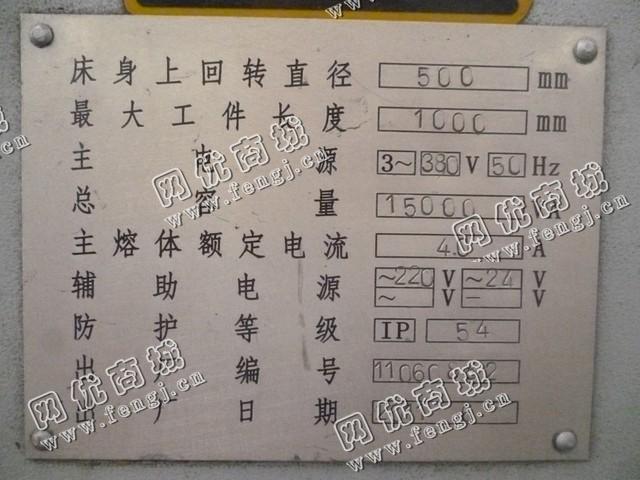 床身上回转直径 500 mm
最大工件长度 1000 mm
主电源 3~ 380 V 50 Hz
总容量 15000 A
主熔体额定电流 4 A
辅助电源 ~220 V ~24 V
~ V — V
防护等级 IP 54
出厂编号
出厂日期
网优商城
www.fengj.cn
网优商城
www.fengj.cn
网优商城
www.fengj.cn
网优商城
www.fengj.cn